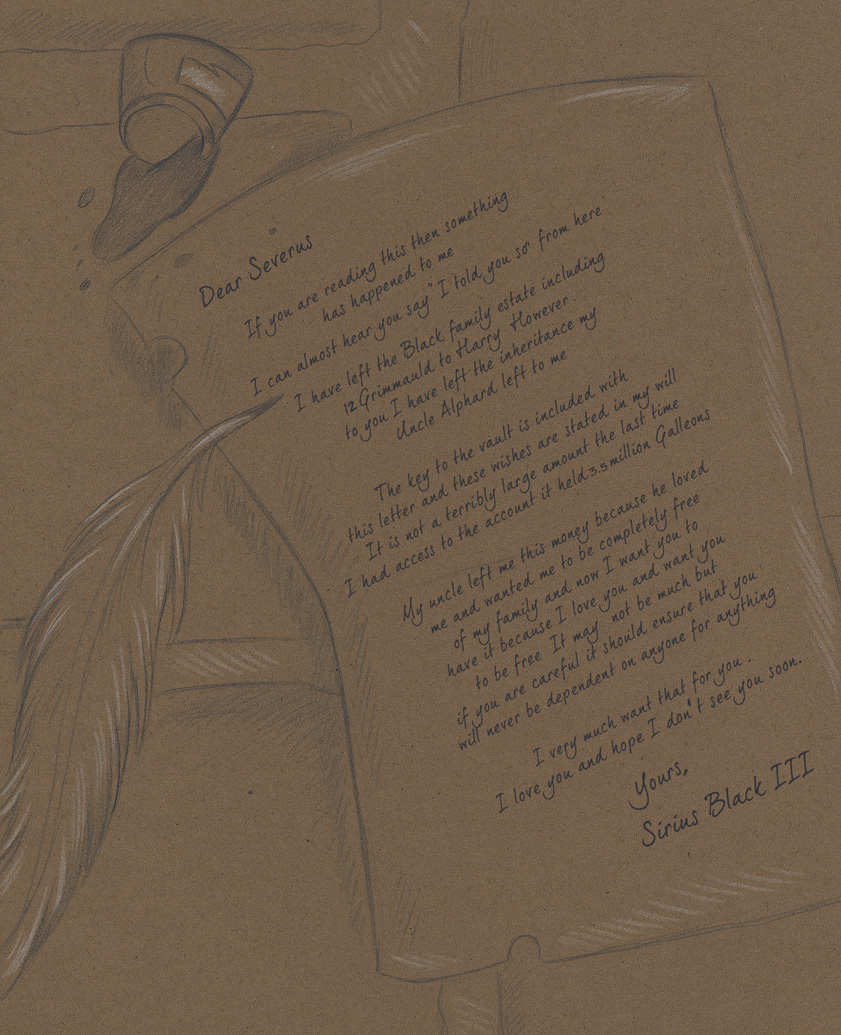 Dear Severus
If you are reading this then something
has happened to me
I can almost hear you say "I told you so" from here
I have left the Black family estate including
12 Grimmauld to Harry However.
to you I have left the inheritance my
Uncle Alphard left to me
The key to the vault is included with
this letter and these wishes are stated in my will
It is not a terribly large amount the last time
I had access to the account it held 3.5 million Galleons
My uncle left me this money because he loved
me and wanted me to be completely free
of my family and now I want you to
have it because I love you and want you
to be free It may not be much but
if you are careful it should ensure that you
will never be dependent on anyone for anything
I very much want that for you.
I love you and hope I don't see you soon.
Yours,
Sirius Black III